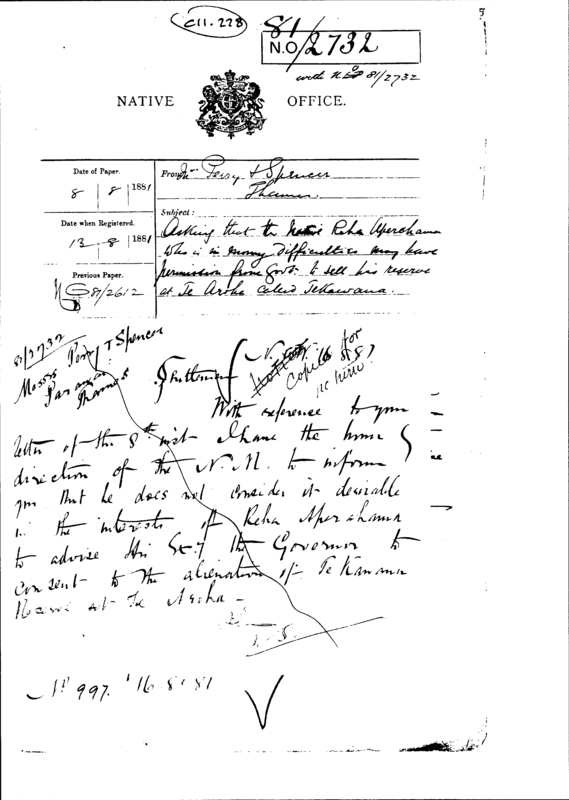 C11.228
81
N.O/2732
with N.O 81/2732
NATIVE OFFICE.
Date of Paper.
8 | 8 | 1881
From Perry & Spencer
Thames.
Date when Registered.
13 - 8 | 1881
Subject:
Asking that the Native Reha Aperahama
who is in money difficulties may have
permission from Govt. to sell his reserve
at Te Aroha called Tekawana.
Previous Paper.
81/2612
81/2732
Messrs Perry & Spencer
Thames
Gentlemen
With reference to your
letter of the 8th inst I have the honor
direction of the N.M. to inform
you that he does not consider it desirable
in the interests of Reha Aperahama
to advise His Exy the Governor to
consent to the alienation of Te Kawana
Reserve at Te Aroha -
No 997. 16.8.81